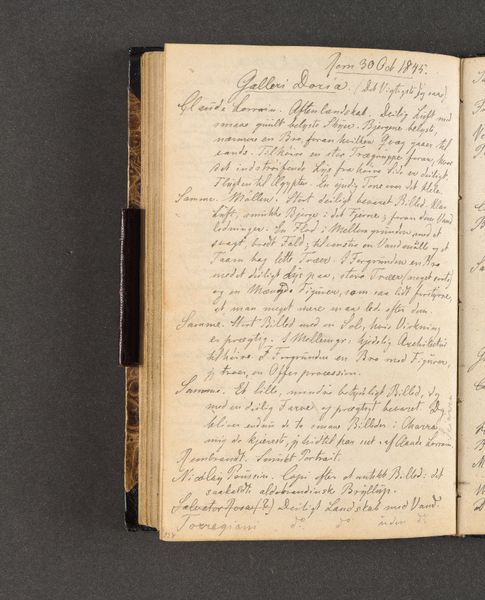 Rom 30 Oct 1845.
Galleri Doria. (Det Vigtigste jeg saae)
Claude Lorrain. Aftenlandskab. Deilig Luft med
smaa guult belyste Skyer. Bjergene belyste,
nærmere en Bro foran hvilken Qvæg gaaer til
vands. Tilhøire en stor Trægruppe foran, hvor
det indstreifende Lys fra høire Side er deiligt
Flugten til Ægypten. En yndig Tone over det Hele.
Samme. Møllen. Stort deiligt bevaret Billed. Klar
Luft, smukke Bjerge i det Fjerne, foran dem Vand
ledninger. En Flod i Mellemgrunden med et
svagt, bredt Fald; tilvenstre en Vandmølle og et
Taarn bag lette Træer. I Forgrunden en Bro
med et deiligt Lys paa, store Træer (meget sorte)
og en Mængde Figurer, som saa lidt forstyrre,
at man meget mere maa lede efter dem.
Samme. Stort Billed med en Sol, hvis Virkning
er prægtig. I Mellemgr. kjedelig Architectur
tilhøire. I Forgrunden en Bro med Figurer,
jeg troer, en Offerprocession.
Samme. Et lille, mindre betydeligt Billed, dog
med en deilig Farve og prægtigt bevaret. Dog
bliver endnu de to smaa Billeder i
mig de kjæreste, jeg hidtil har seet af Claude Lorrain.
Rembrandt. Smukt Portrait.
Nicolay Poussin. Copi efter et antikt Billed: det
saakaldte aldobrandinske Bryllup.
Salvator Rosa (?) Deiligt Landskab med Vand.
Torregiani do. do. uden do.